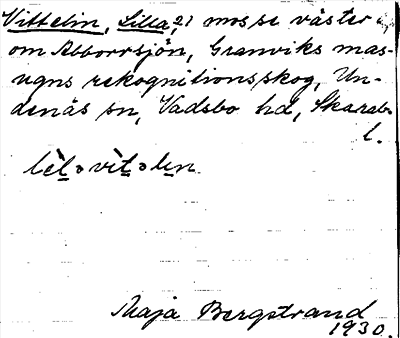 Vittelin, Lilla, 2) mosse väster
om Abborrsjön, Granviks mas-
ugns rekognitionsskog, Un-
denäs sn, Vadsbo hd, Skarab.
l.
Maja Bergstrand
1930.